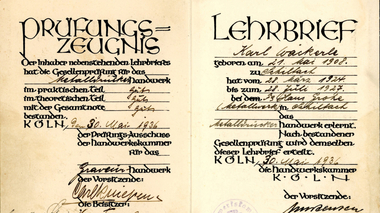 PRÜFUNGS=
ZEUGNIS
Der Inhaber nebenstehenden Lehrbriefs
hat die Gesellenprüfung für das
Metalldrücker Handwerk
im praktischen Teil Gut
im theoretischen Teil Gut
mit der Gesamtnote Gut
bestanden.
KÖLN, den 30. Mai 1936
der Prüfungs-Ausschuss
der Handwerkskammer
für das
Graveur Handwerk
Der Vorsitzende:
Die Beisitzer:
LEHRBRIEF
Karl Wäckerle
geboren am 21. Mai 1908. zu
hat vom 28. März 1924
bis zum 28. Juli 1927.
bei dem
das
Metalldrücker Handwerk erlernt.
Nach bestandener
Gesellenprüfung wird demselben
dieser Lehrbrief erteilt.
KÖLN 30. Mai 1936
die Handwerkskammer
K·Ö·L·N
der Vorsitzende: